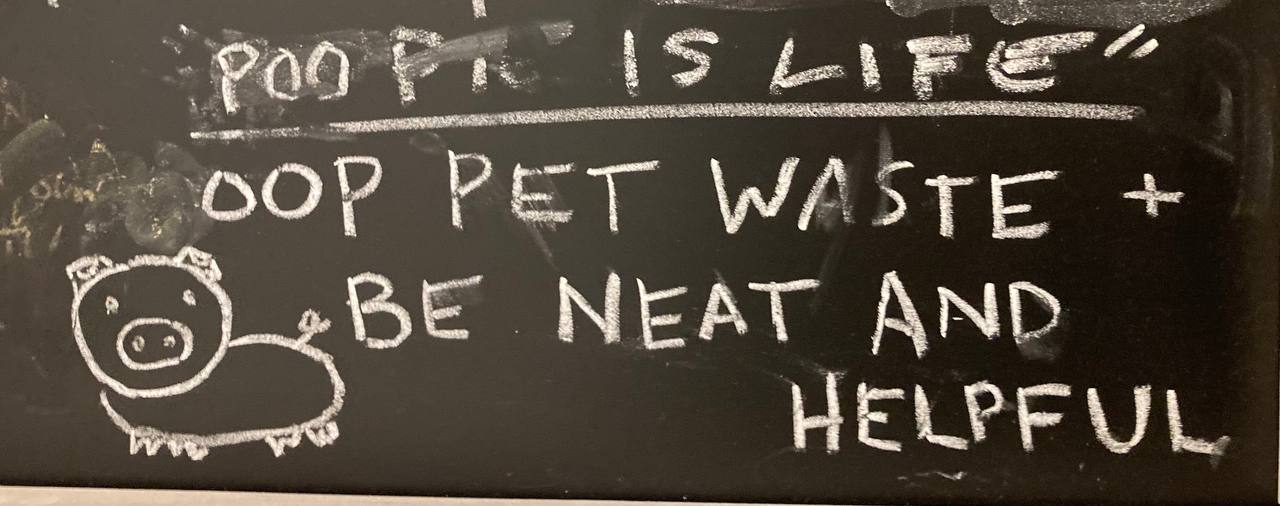 POOPIE IS LIFE"
OOP PET WASTE +
BE NEAT AND
HELPFUL